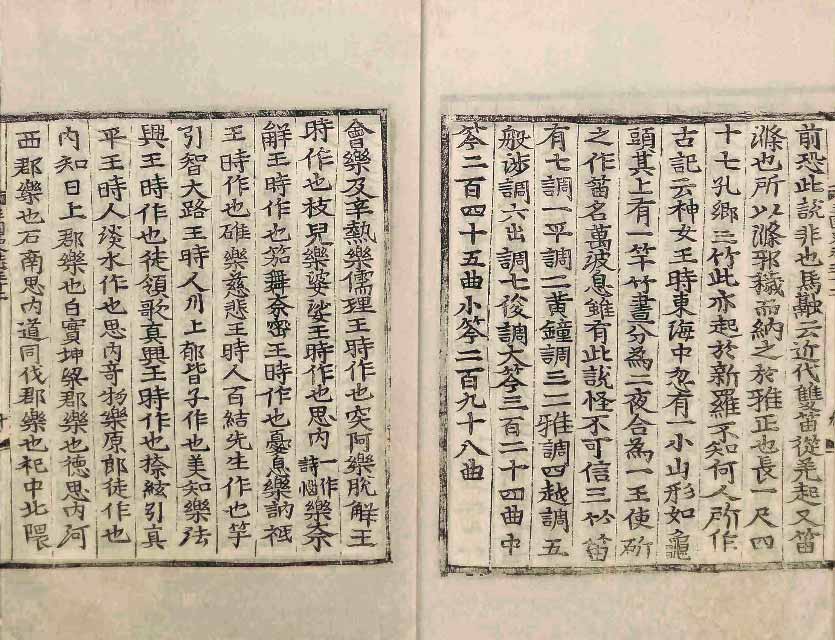 前恐此說非也馬融云近代雙笛從羌起又笛
滌也所以滌邪穢而納之於雅正也長一尺四
十七孔鄉三竹此亦起於新羅不知何人所作
古記云神女王時東海中忽有一小山形如龜
頭其上有一竿竹晝分爲二夜合爲一王使斫
之作笛名萬波息雖有此說怪不可信三竹笛
有七調一平調二黃鐘調三二雅調四越調五
般涉調六出調七俊調大笒三百二十四曲中
笒二百四十五曲小笒二百九十八曲
會樂及辛熱樂儒理王時作也突阿樂脫解王
時作也枝兒樂婆娑王時作也思內一作詩惱樂奈
解王時作也笳舞奈密王時作也憂息樂訥祗
王時作也碓樂慈悲王時人百結先生作也竽
引智大路王時人川上郁皆子作也美知樂法
興王時作也徒領歌真興王時作也捺絃引真
平王時人淡水作也思內奇物樂原郎徒作也
內知日上郡樂也白實押梁郡樂也德思內河
西郡樂也石南思內道同伐郡樂也祀中北隈